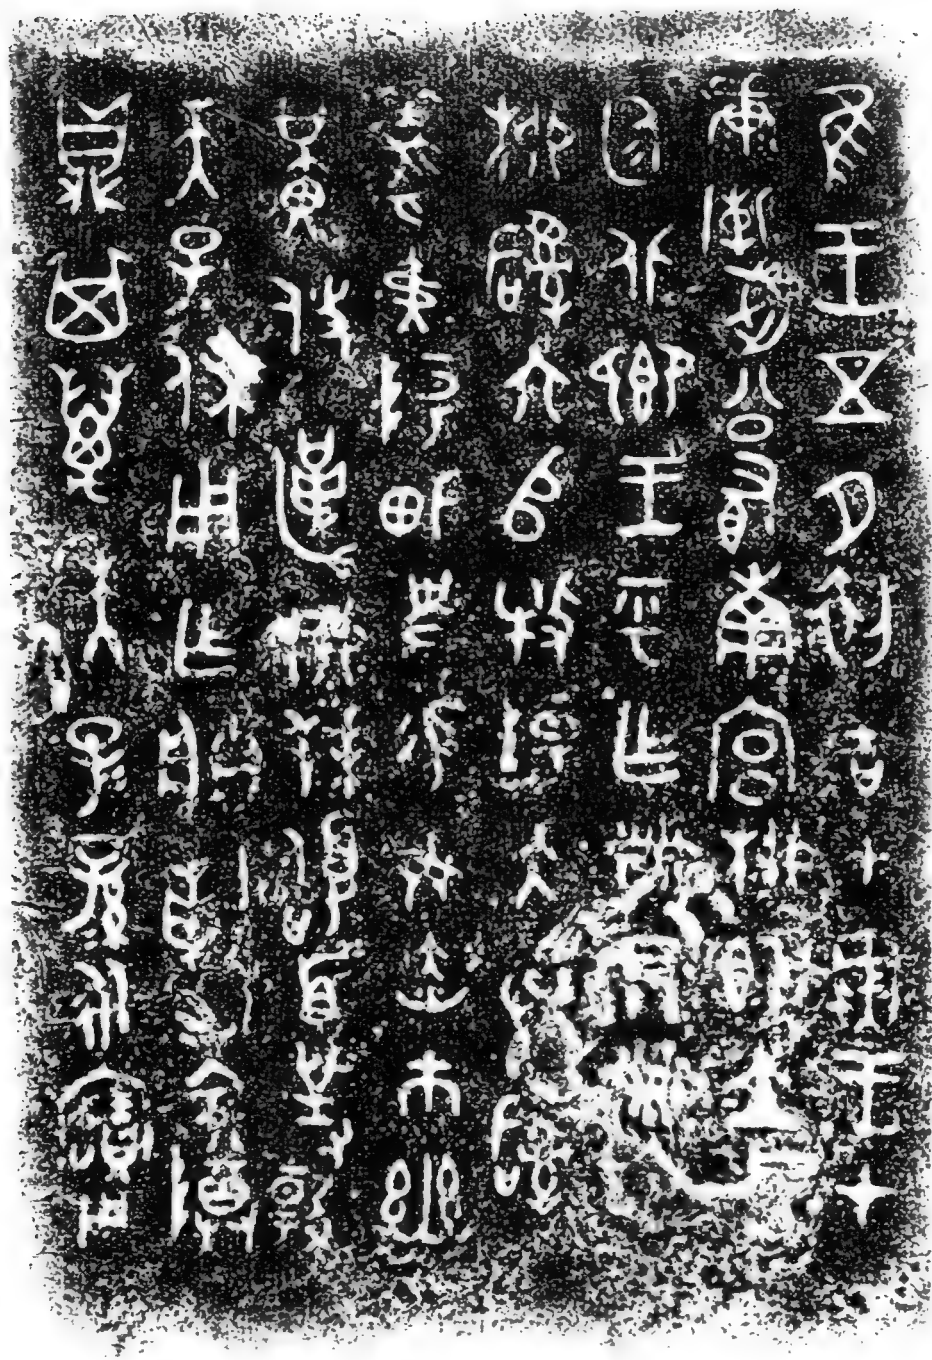 隹王五月初吉甲寅王才
康廟武公有南宮柳即立中
廷北卿王乎乍冊尹冊令
柳𤔲六𠂤牧陽大𤔲
羲夷陽佃史易女赤市幽
黃攸勒柳拜𩒨首對揚
天子休用乍朕剌考尊
鼎其萬年子子孫孫永寶用